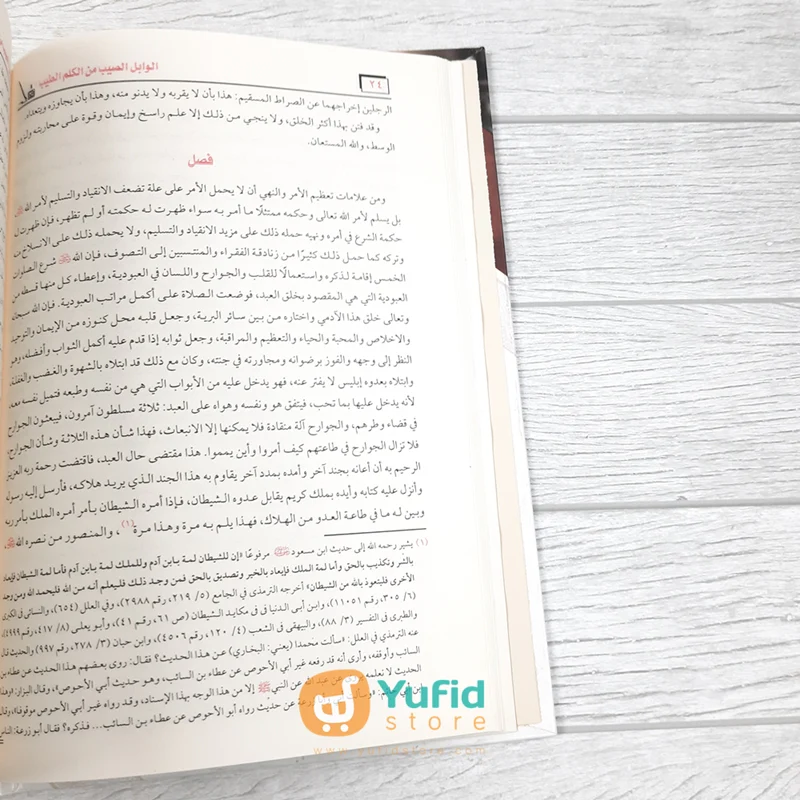 الوابل الصيب من الكلم الطيب
٢٤
الرجلين إخراجهما عن الصراط المستقيم: هذا بأن لا يقربه ولا يدنو منه، وهذا بأن يجاوزه ويتعداه.
وقد فتن بهذا أكثر الخلق، ولا ينجي من ذلك إلا علم راسخ وإيمان وقوة على محاربته ولزوم
الوسط، والله المستعان.
فصل
ومن علامات تعظيم الأمر والنهي أن لا يحمل الأمر على علة تضعف الانقياد والتسليم لأمر الله
بل يسلم لأمر الله تعالى وحكمه ممتثلًا ما أمر به سواء ظهرت له حكمته أو لم تظهر، فإن ظهرت له
حكمة الشرع في أمره ونهيه حمله ذلك على مزيد الانقياد والتسليم، ولا يحمله ذلك على الانسلاخ منه
وتركه كما حمل ذلك كثيرًا من زنادقة الفقراء والمنتسبين إلى التصوف، فإن الله ﷻ شرع الصلوات
الخمس إقامة لذكره واستعمالًا للقلب والجوارح واللسان في العبودية، وإعطاء كل منها قسطه من
العبودية التي هي المقصود بخلق العبد، فوضعت الصلاة على أكمل مراتب العبودية. فإن الله سبحانه
وتعالى خلق هذا الآدمي واختاره من بين سائر البرية، وجعل قلبه محل كنوزه من الإيمان والتوحيد
والاخلاص والمحبة والحياء والتعظيم والمراقبة، وجعل ثوابه إذا قدم عليه أكمل الثواب وأفضله، وهو
النظر إلى وجهه والفوز برضوانه ومجاورته في جنته، وكان مع ذلك قد ابتلاه بالشهوة والغضب والغفلة،
وابتلاه بعدوه إبليس لا يفتر عنه، فهو يدخل عليه من الأبواب التي هي من نفسه وطبعه فتميل نفسه معه،
لأنه يدخل عليها بما تحب، فيتفق هو ونفسه وهواه على العبد: ثلاثة مسلطون آمرون، فيبعثون الجوارح
في قضاء وطرهم، والجوارح آلة منقادة فلا يمكنها إلا الانبعاث، فهذا شأن هذه الثلاثة وشأن الجوارح،
فلا تزال الجوارح في طاعتهم كيف أمروا وأين يمموا. هذا مقتضى حال العبد، فاقتضت رحمة ربه العزيز
الرحيم به أن أعانه بجند آخر وأمده بمدد آخر يقاوم به هذا الجند الذي يريد هلاكه، فأرسل إليه رسوله
وأنزل عليه كتابه وأيده بملك كريم يقابل عدوه الشيطان، فإذا أمره الشيطان بأمر أمره الملك بأمر ربه
وبين له ما في طاعة العدو من الهلاك، فهذا يلم به مرة وهذا مرة(١)، والمنصور من نصره الله ﷻ،
(١) يشير رحمه الله إلى حديث ابن مسعود مرفوعًا «إن للشيطان لمة بابن آدم وللملك لمة بابن آدم فأما لمة الشيطان فإيعاد
بالشر وتكذيب بالحق وأما لمة الملك فإيعاد بالخير وتصديق بالحق فمن وجد ذلك فليعلم أنه من الله فليحمد الله ومن وجد
الأخرى فليتعوذ بالله من الشيطان» أخرجه الترمذي في الجامع (٥/ ٢١٩، رقم ٢٩٨٨)، وفي العلل (٦٥٤)، والنسائي في الكبرى
(٦/ ٣٠٥، رقم ١١٠٥١)، وابن أبى الدنيا فى مكايد الشيطان (ص ٦١، رقم ٤١)، وأبو يعلى (٨/ ٤١٧، رقم ٤٩٩٩)،
والطبرى فى التفسير (٣/ ٨٨)، والبيهقى فى الشعب (٤/ ١٢٠، رقم ٤٥٠٦)، وابن حبان (٣/ ٢٧٨، رقم ٩٩٧) والحديث قال
عنه الترمذي في العلل: «سألت محمدا (يعني: البخاري) عن هذا الحديث؟ فقال: روى بعضهم هذا الحديث عن عطاء بن
السائب وأوقفه، وأرى أنه قد رفعه غير أبي الأحوص عن عطاء بن السائب، وهو حديث أبي الأحوص»، وقال البزار: «وهذا
الحديث لا نعلمه عن عبد الله عن النبي ﷺ إلا من هذا الوجه بهذا الإسناد، وقد رواه غير أبي الأحوص موقوفا»، وقال
عن حديث رواه أبو الأحوص عن عطاء بن السائب... فذكره؟ فقال أبو زرعة: الناس
Yufid
store